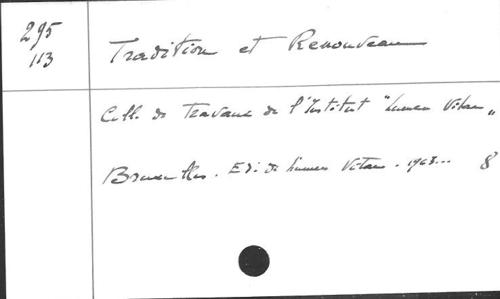 295
113
Tradition et Renouveau
Coll. de Travaux de l'Institut "Lumen Vitae„
Bruxelles. Ed. de Lumen Vitae. 1963... 8°